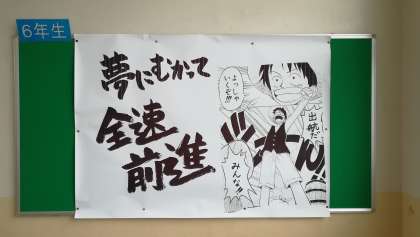 6年生
夢にむかって
全速
前進
よっしゃ
いくぞ!!!
出航だ
みんな!!